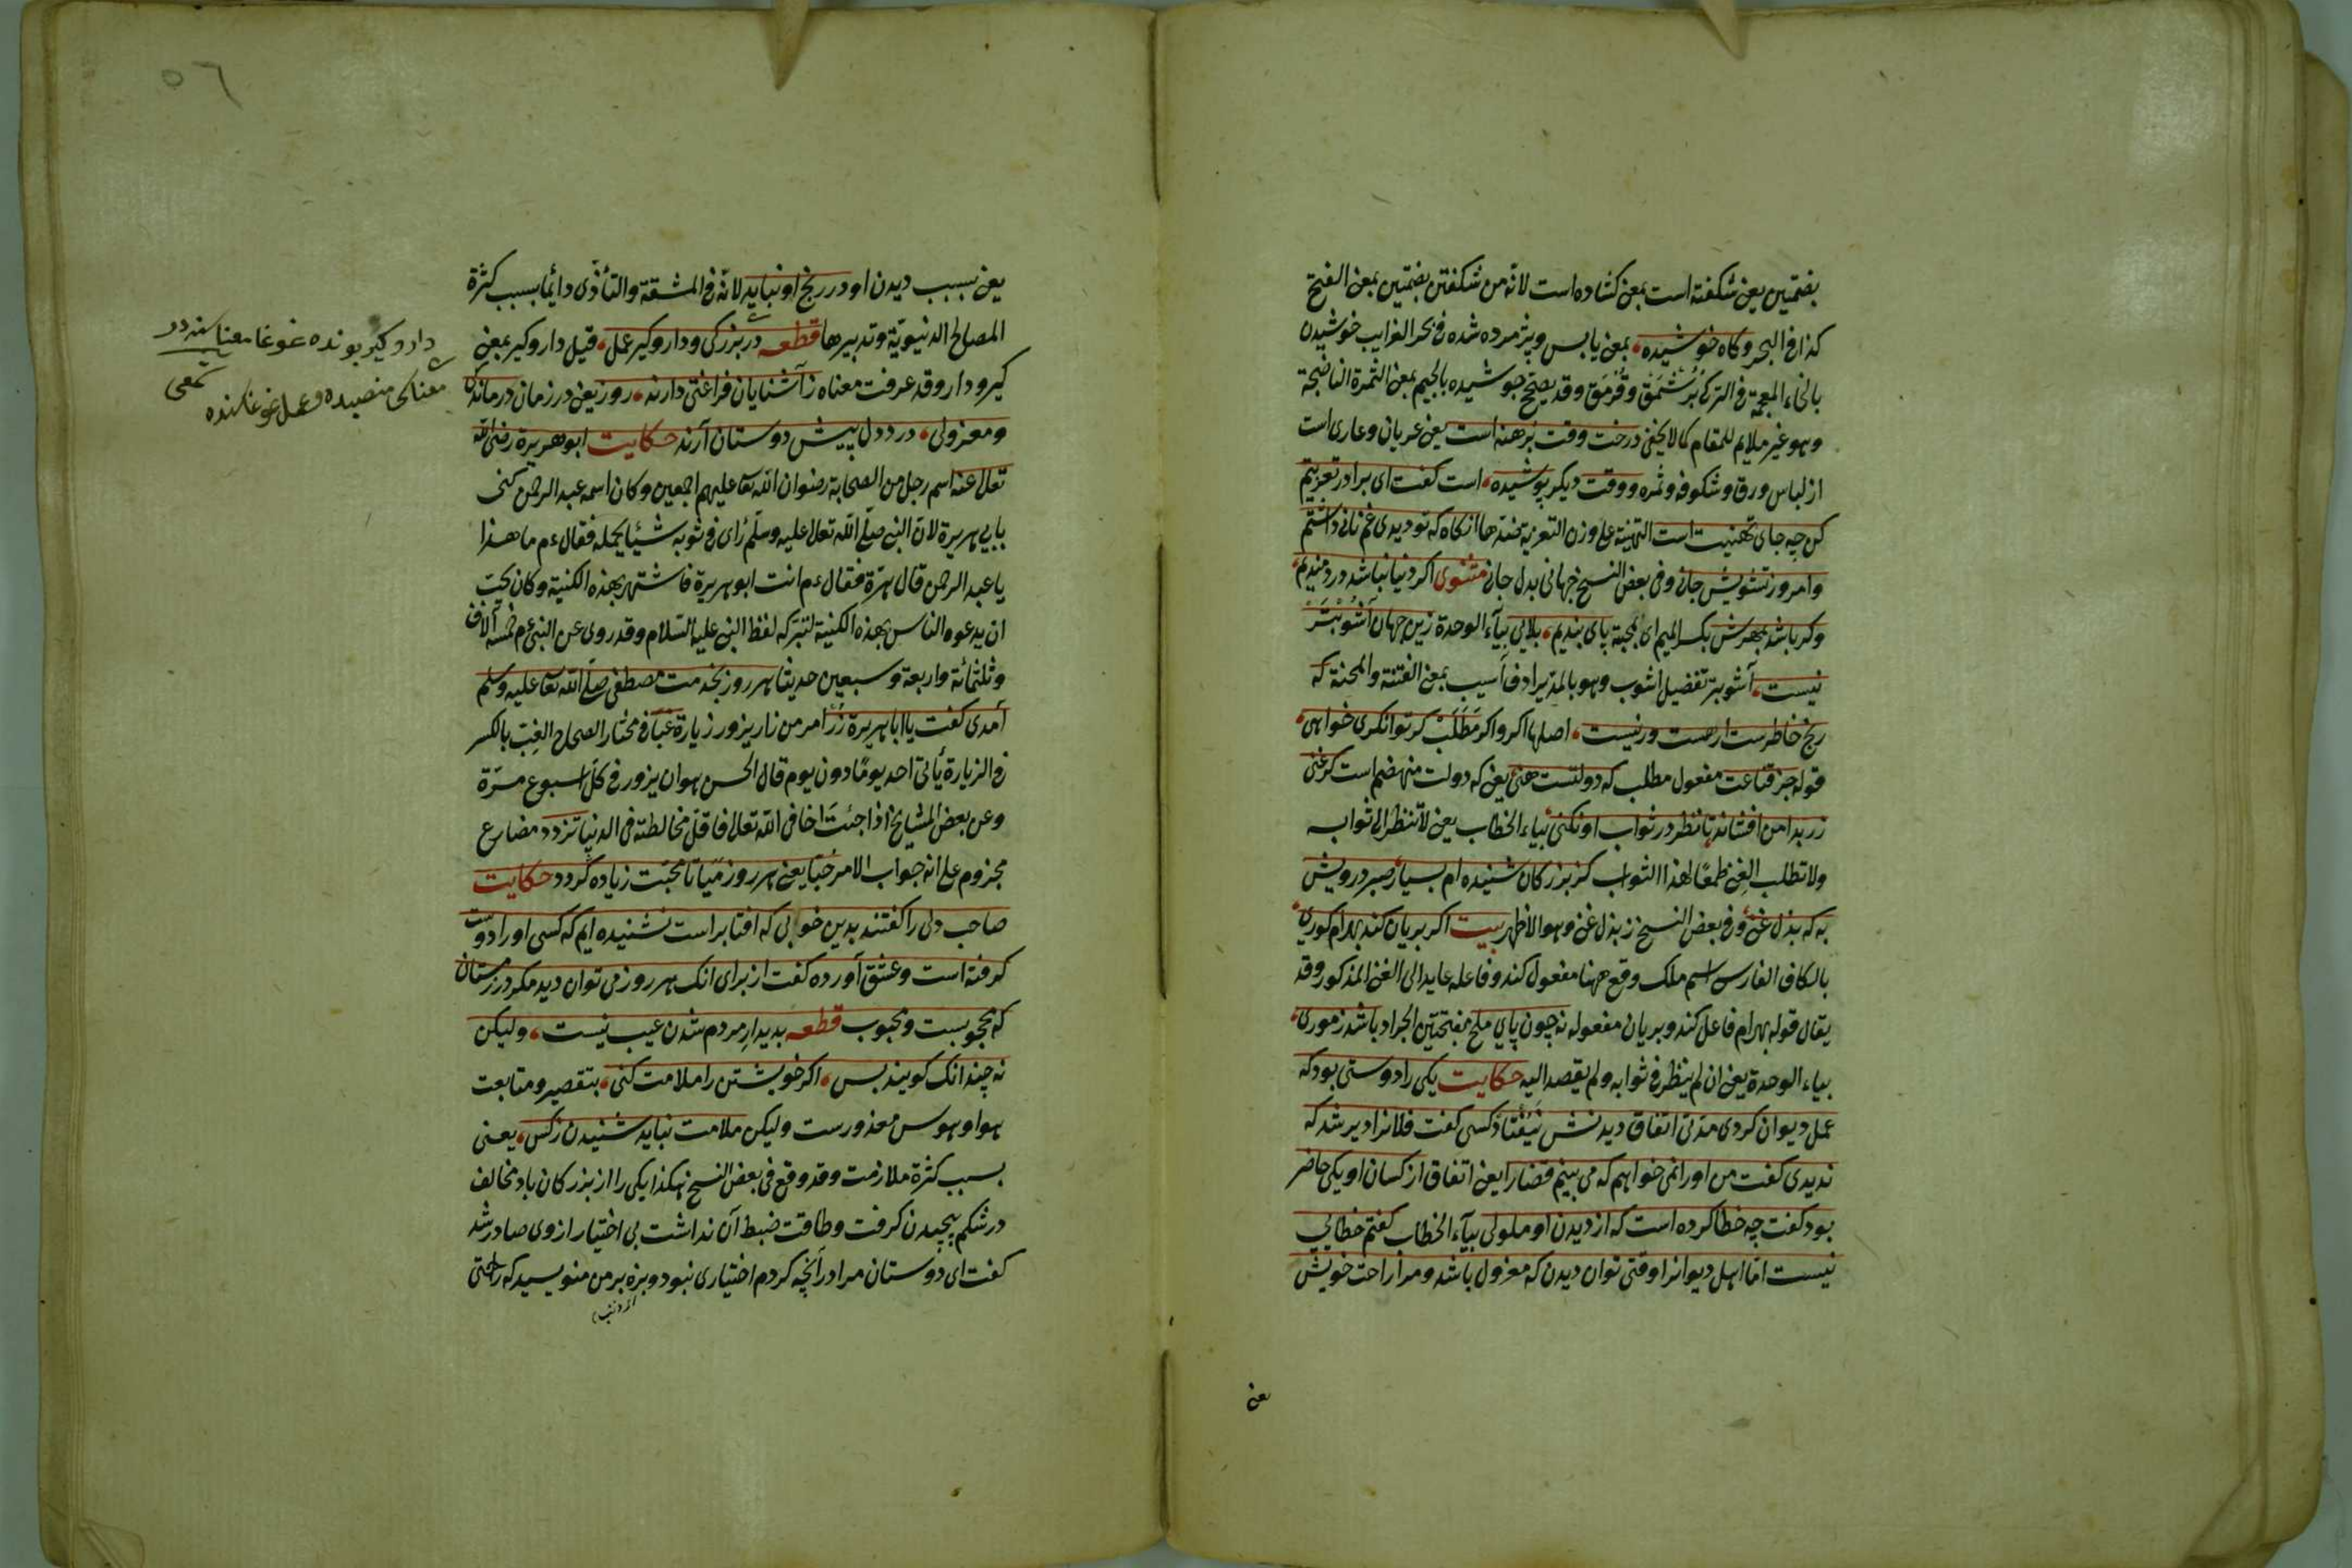 بضمتين يعنی شكفته است بمعنی كشاده است لانّه من شكفتن بضمتين بمعنی الفتح
كذا فی البحر وكاه خوشيده بمعنی يابس وپژمرده شده فی بحر الغرايب خوشيدن
بالخاء المعجمة فی الترك وقد يصحّح جوشيده بالجيم بمعنی الثمرة الناضجة
وهو غير ملايم للمقام كما لا يخفی درخت وقت برهنه است يعنی عريان وعاری است
از لباس ورق وشكوفه وثمره ووقت ديكر پوشيده است كفت ای برادر تعزيتم
كن چه جای تهنيت است التهنية علی وزن التعزية ضدها انكاه كه تو ديدی غم نانی داشتم
وامروز تشويش جانی وفی بعض النسخ جهانی بدل جانی مثنوی اكر دنيا نباشد دردمنديم
وكر باشد بمهرش بكسر الميم ای بمحبة پای بنديم بلايی بياء الوحدة زين جهان آشوبتر
نيست آشوبتر تفضيل اشوب وهو بالمدّ يرادف آسيب بمعنی الفتنة والمحنة كه
رنج خاطرست ارهست ورنيست اصلها اكر واكر مطلب كر توانكری خواهی
قوله جز قناعت مفعول مطلب كه دولتست هنی يعنی كه دولت منهضم است كر غنی
زر بدامن افشاند تا نظر در ثواب او نكنی بياء الخطاب يعنی لا تنظر الی ثوابه
ولا تطلب الغنی طمعًا لهذا الثواب كز بزركان شنيده ام بسيار صبر درويش
به كه بذل غنی وفی بعض النسخ ز بذل غنی وهو الاظهر بيت اكر بريان كند بهرام كوری
بالكاف الفارسی اسم ملك وقع ههنا مفعول كند وفاعله عايد الی الغنی المذكور وقد
يقال قوله بهرام فاعل كند وبريان مفعوله نه چون پای ملخ بفتحتين الجراد باشد ز موری
بياء الوحدة يعنی ان لم ينظر فی ثوابه ولم يقصد اليه حكايت يكی را دوستی بود كه
عمل ديوان كردی مدتی اتفاق ديدنش نيفتاد كسی كفت فلانرا دير شد كه
نديدی كفت من او را نمی خواهم كه می بينم قضا را يعنی اتفاق از كسان او يكی حاضر
بود كفت چه خطا كرده است كه از ديدن او ملولی بياء الخطاب كفتم خطايی
نيست امّا اهل ديوانرا وقتی توان ديدن كه معزول باشد ومرا راحت خويش
يعنی
٥٦
يعنی بسبب ديدن او در رنج او نبايد لانّه فی المشقة والتأذّی دايمًا بسبب كثرة
المصالح الدنيويّة وتدبيرها قطعه در بزركی وداروكير عمل قيل داروكير بمعنی
كيرودار وقد عرفت معناه ز آشنايان فراغتی دارند روز يعنی در زمان درماندكی
ومعزولی درد دل پيش دوستان آرند حكايت ابو هريرة رضی الله
تعالی عنه اسم رجل من الصحابة رضوان الله تعا عليهم اجمعين وكان اسمه عبد الرحمن كنی
بابی هريرة لانّ النبی صلّی الله تعالی عليه وسلّم رأی فی ثوبه شيئًا يحمله فقال ءم ما هذا
يا عبد الرحمن قال هرّة فقال ءم انت ابو هريرة فاشتهر بهذه الكنية وكان يحبّ
ان يدعوه الناس بهذه الكنية لتبرّكه لفظ النبی عليه السّلام وقد روی عن النبی ءم خمسة آلاف
وثلثمائة واربعة وسبعين حديثا هر روز بخدمت مصطفی صلّی الله تعا عليه وسلم
آمدی كفت يا ابا هريرة زر امر من زار يزور زيارة غبًّا فی مختار الصحاح الغبّ بالكسر
فی الزيارة يأتی احد يومًا دون يوم قال الحسن هو ان يزور فی كلّ اسبوع مرّة
وعن بعض المشايخ اذا جئت اخا فی الله تعالی فاقلّ مخالطته فی الدنيا تزدد مضارع
مجزوم علی انه جواب الامر حبًّا يعنی هر روز ميا تا محبّت زياده كردد حكايت
صاحب دلی را كفتند بدين خوبی كه افتابراست نشنيده ايم كه كسی او را دوست
كرفته است وعشق آورده كفت از برای انك هر روز می توان ديد مكر در زمستان
كه محجوبست ومحبوب قطعه بديدار مردم شدن عيب نيست وليكن
نه چندانك كويند بس اكر خويشتن را ملامت كنی بتقصير ومتابعت
هوا وهوس معذورست وليكن ملامت نبايد شنيدن ز كس يعنی
بسبب كثرة ملازمت وقد وقع فی بعض النسخ هكذا يكی را از بزركان باد مخالف
در شكم پيچيدن كرفت وطاقت ضبط آن نداشت بی اختيار از وی صادر شد
كفت ای دوستان مرا در آنچه كردم اختياری نبود وبزه بر من منويسيد كه راحتی
داروكير بونده غوغا معناسنه در
معناكی منصبده وعمل غوغاسنده